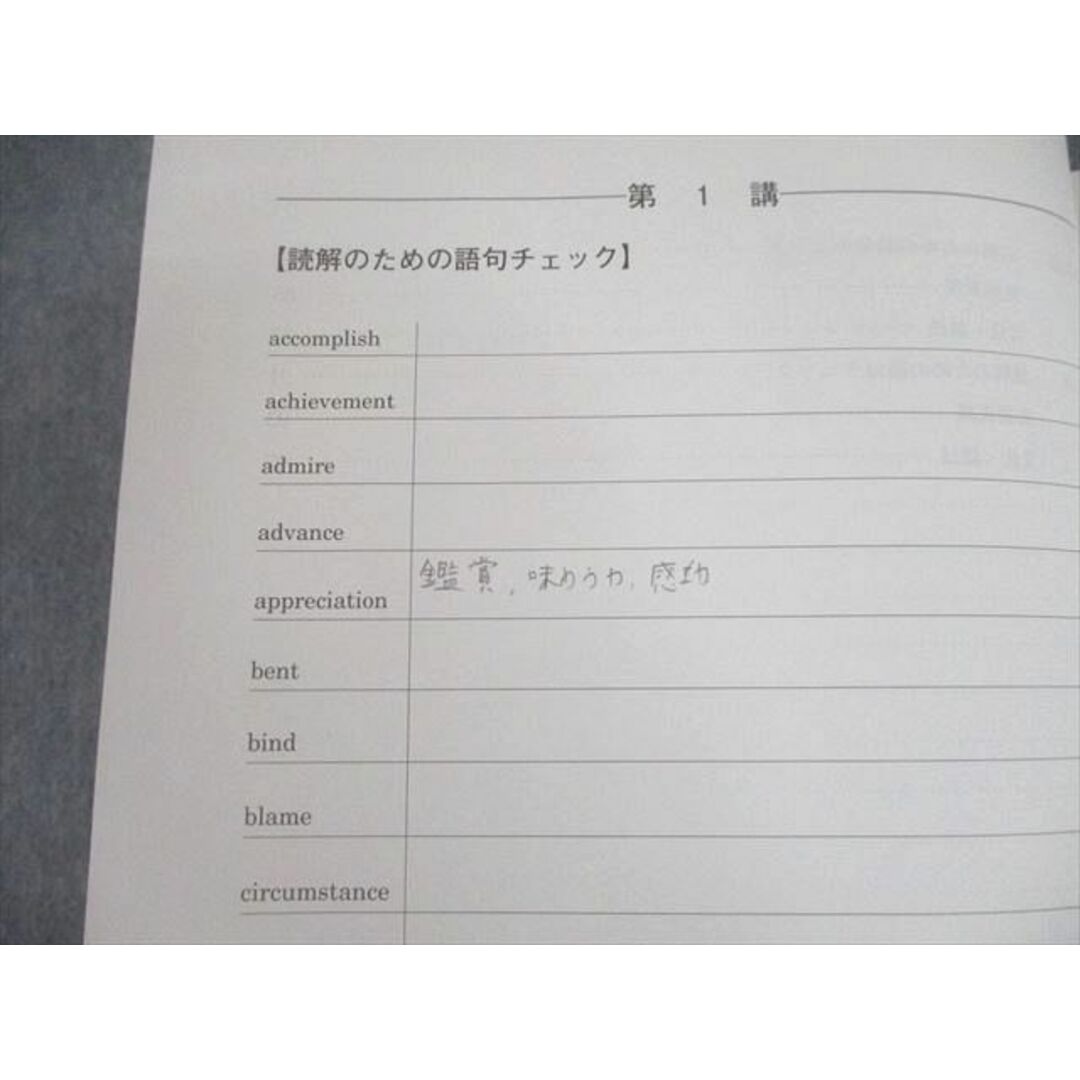 第 1 講
【読解のための語句チェック】
accomplish
achievement
admire
advance
appreciation 鑑賞, 味わう力, 感動
bent
bind
blame
circumstance